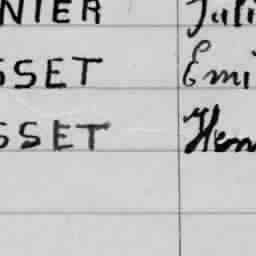 NIER Juli
SSET Emi
SSET Hen